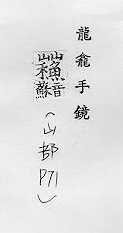 龍龕手鏡
音蘇(山部P71)